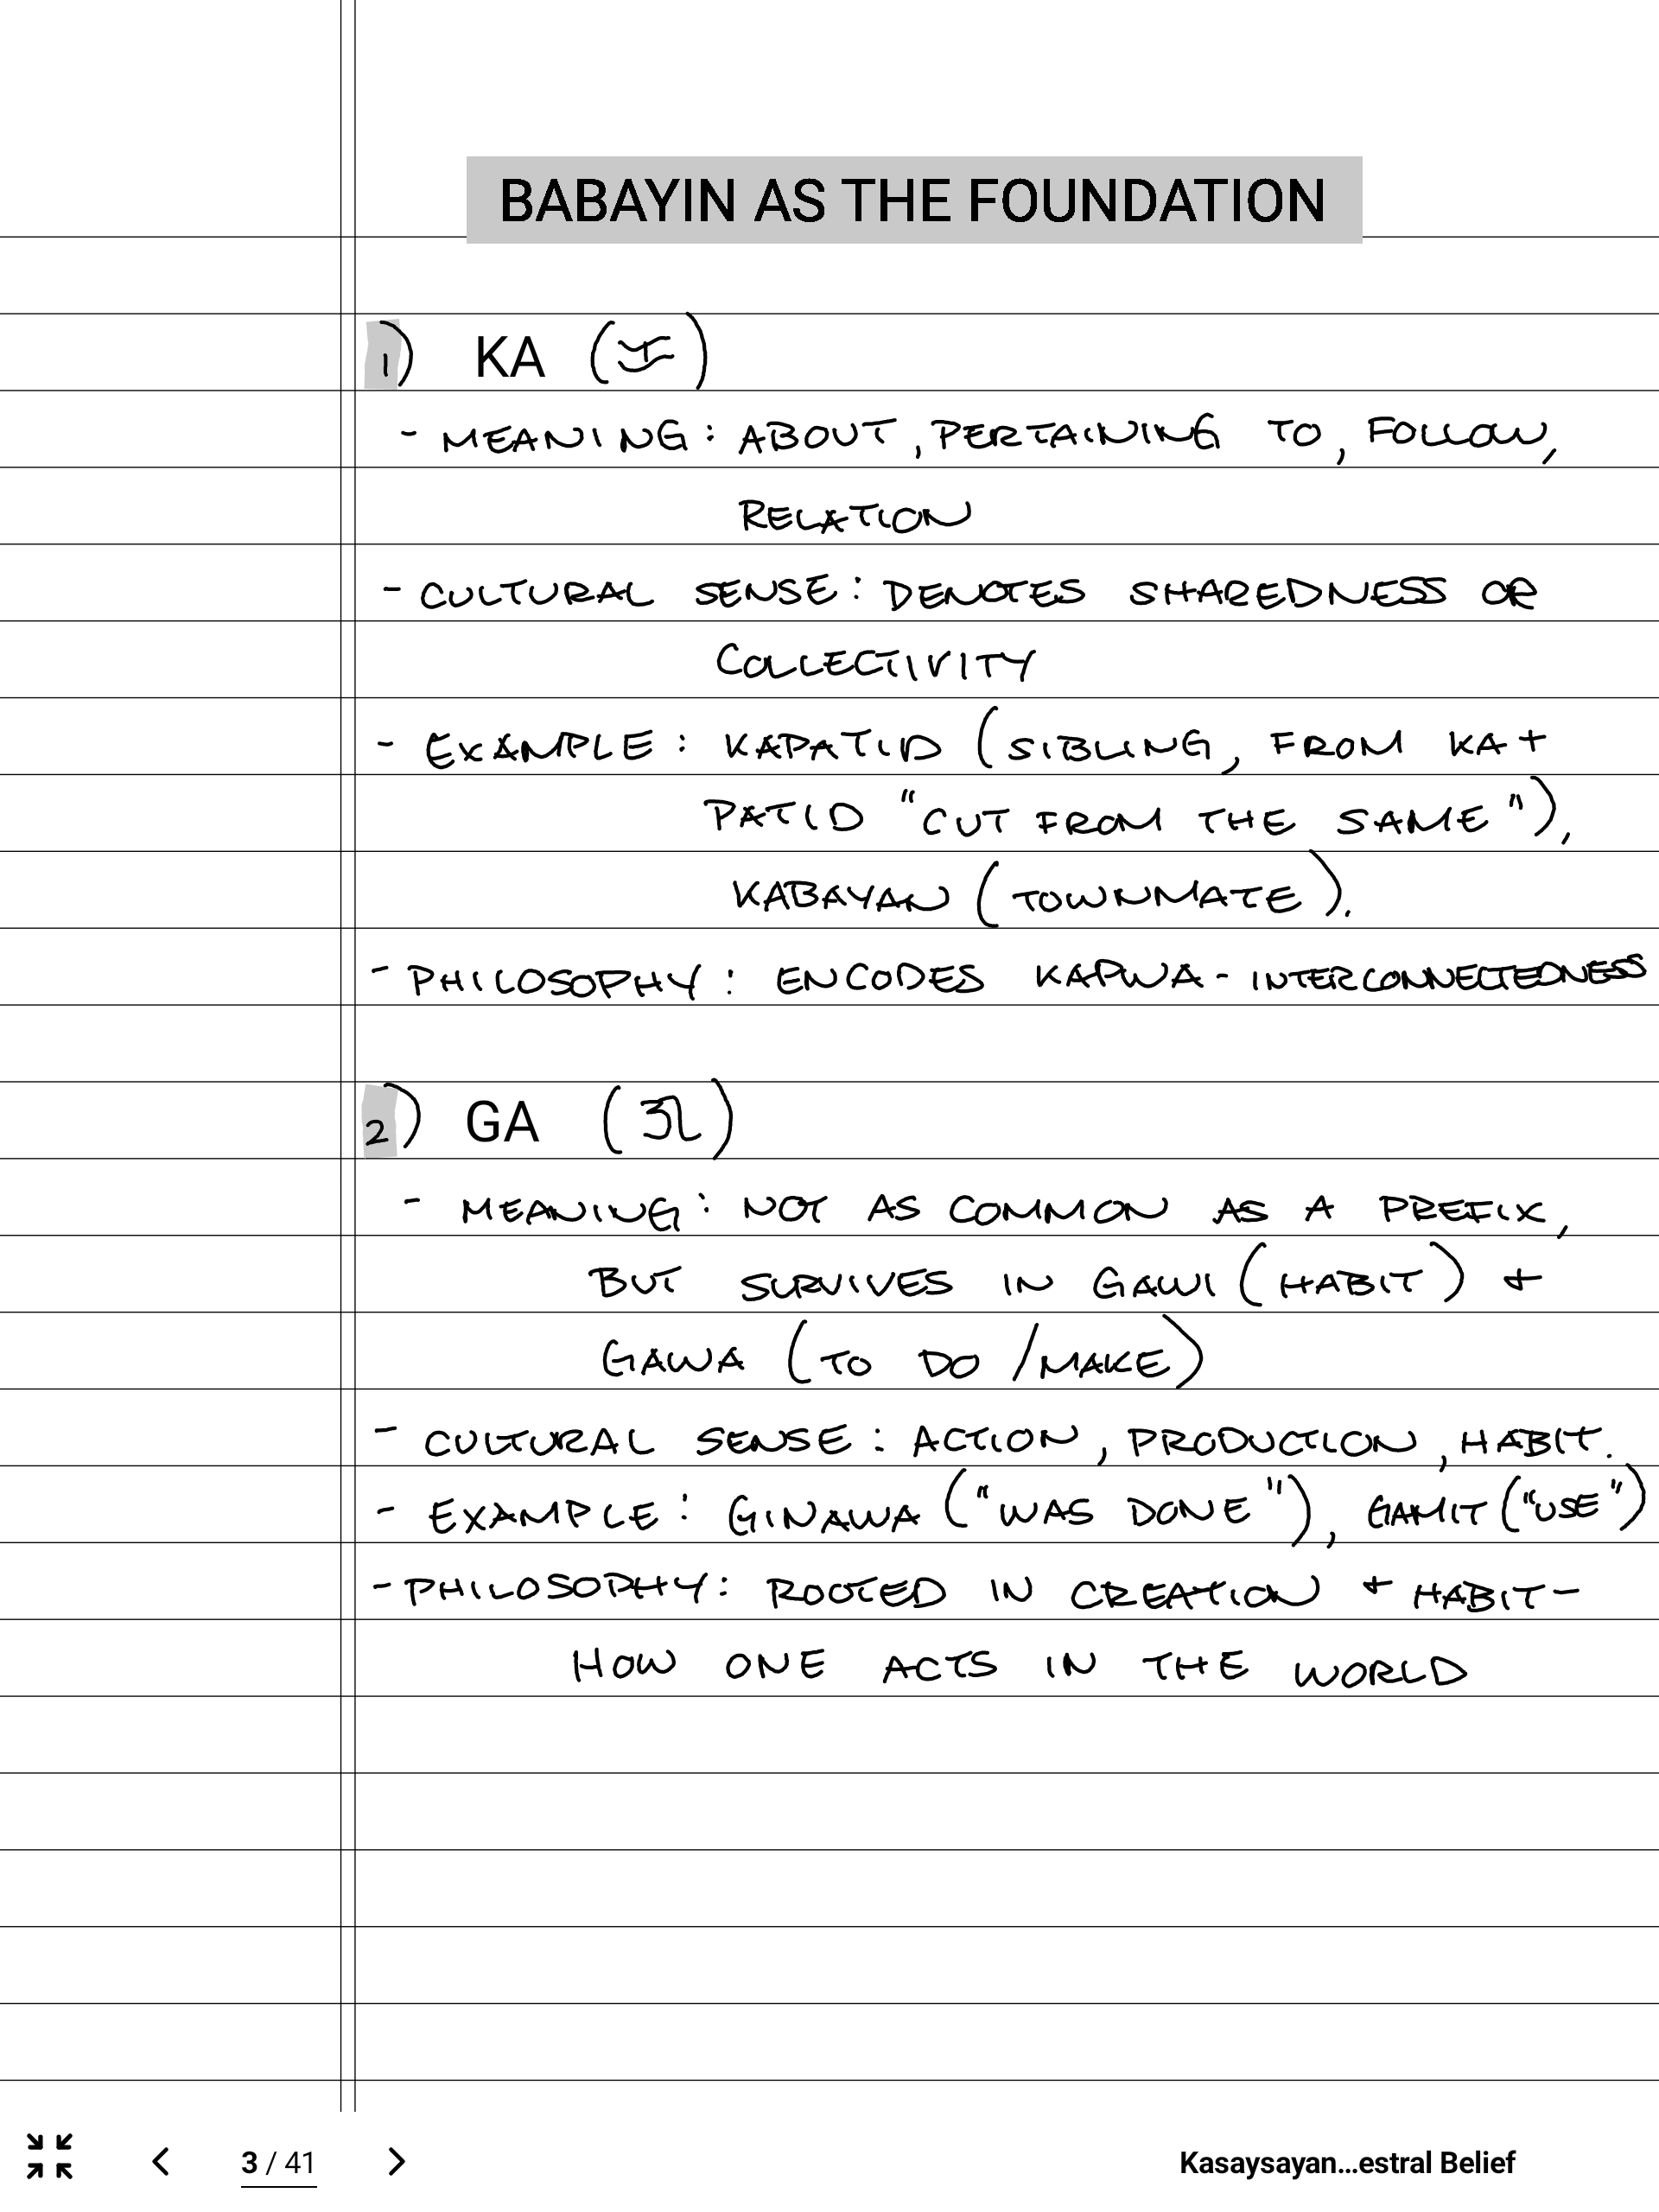 BABAYIN AS THE FOUNDATION
1) KA (ᜃ)
- MEANING: ABOUT, PERTAINING TO, FOLLOW,
RELATION
- CULTURAL SENSE: DENOTES SHAREDNESS OR
COLLECTIVITY
- EXAMPLE: KAPATID (SIBLING, FROM KA +
PATID "CUT FROM THE SAME"),
KABAYAN (TOWNMATE).
- PHILOSOPHY: ENCODES KAPWA - INTERCONNECTEDNESS
2) GA (ᜄ)
- MEANING: NOT AS COMMON AS A PREFIX,
BUT SURVIVES IN GAWI (HABIT) +
GAWA (TO DO /MAKE)
- CULTURAL SENSE: ACTION, PRODUCTION, HABIT.
- EXAMPLE: GINAWA ("WAS DONE"), GAMIT ("USE")
- PHILOSOPHY: ROOTED IN CREATION + HABIT -
HOW ONE ACTS IN THE WORLD
3 / 41
Kasaysayan...estral Belief